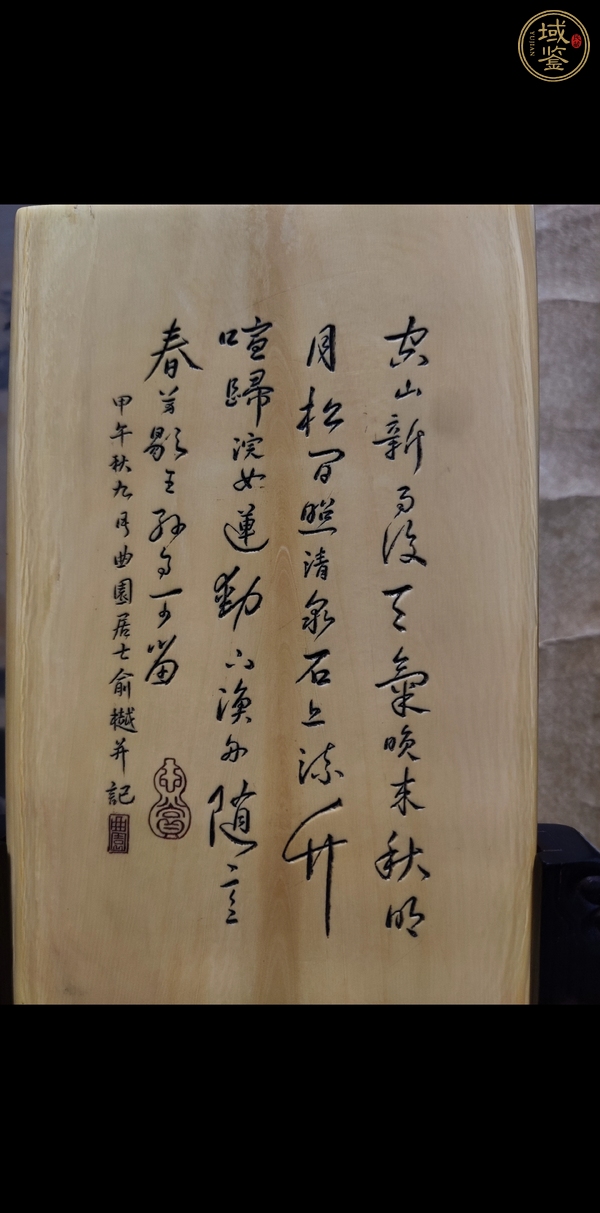 域鉴
YUJIAN
空山新雨後天氣晚来秋明
月松間照清泉石上流竹
喧歸浣女蓮動下漁舟随意
春芳歇王孫自可留
甲午秋九月曲園居士俞樾并記
曲園